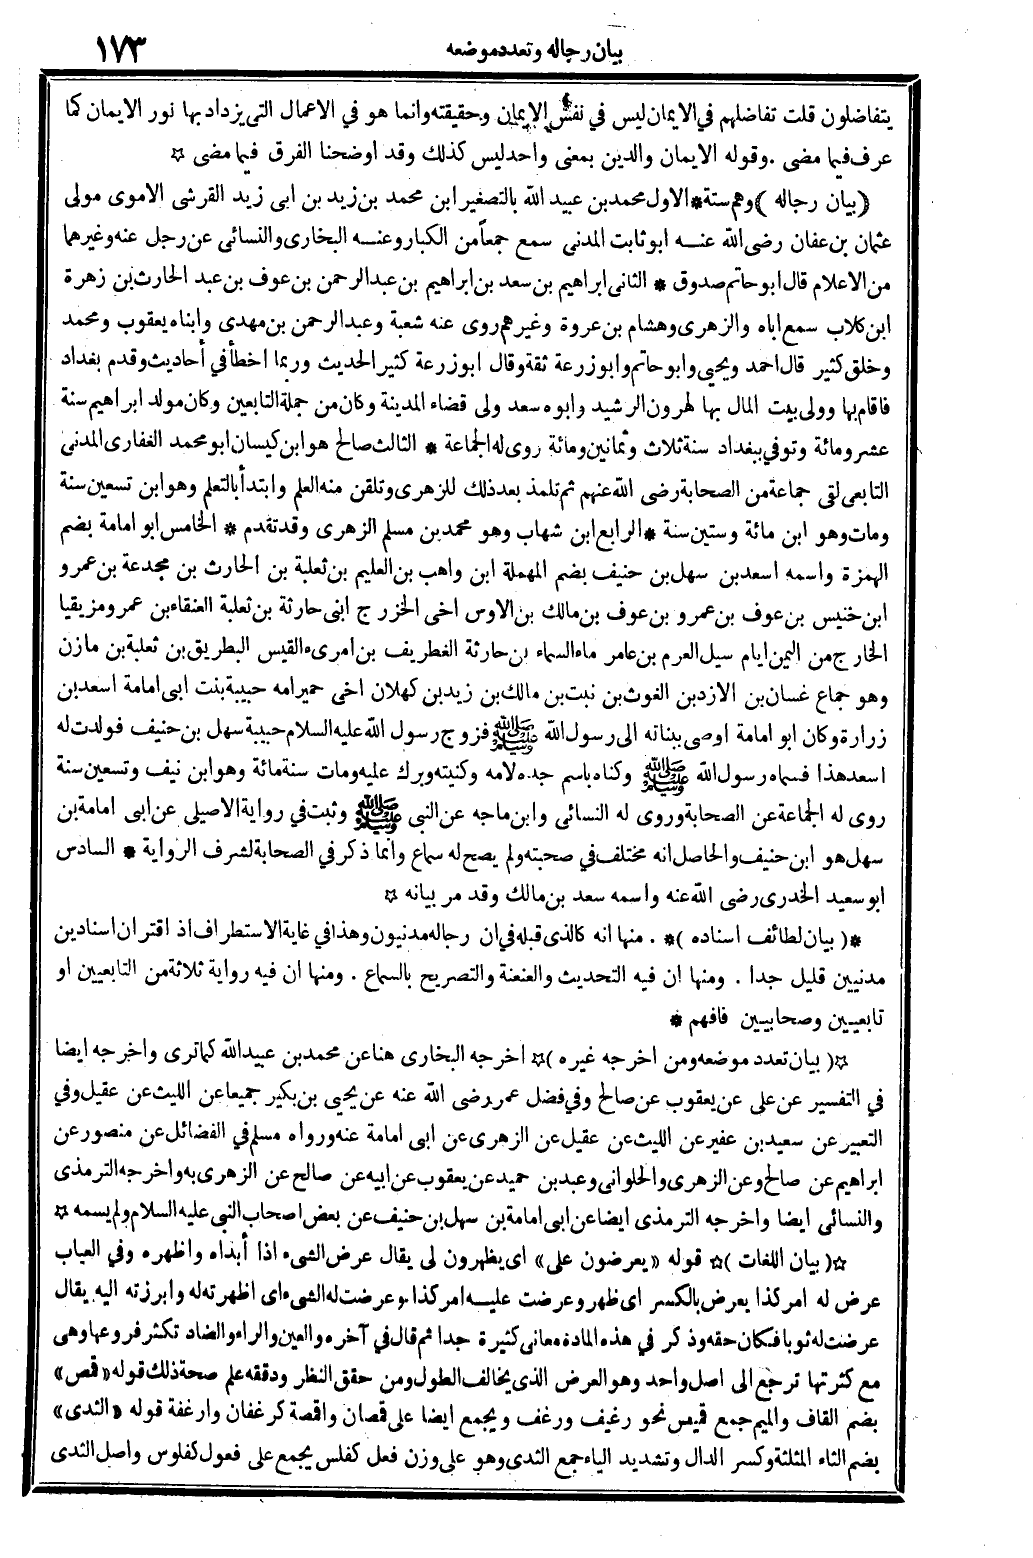 بيان رجاله وتعدد موضعه ١٧٣
يتفاضلون قلت تفاضلهم في الايمان ليس في نفس الايمان وحقيقته وانما هو في الاعمال التي يزداد بها نور الايمان كما
عرف فيما مضى . وقوله الايمان والدين بمعنى واحد ليس كذلك وقد اوضحنا الفرق فيما مضى ☆
( بيان رجاله ) وهم ستة * الاول محمد بن عبيد الله بالتصغير ابن محمد بن زيد بن ابى زيد القرشى الاموى مولى
عثمان بن عفان رضى الله عنه ابو ثابت المدنى سمع جمعاً من الكبار وعنه البخارى والنسائى عن رجل عنه وغيرهما
من الاعلام قال ابو حاتم صدوق * الثانى ابراهيم بن سعد بن ابراهيم بن عبد الرحمن بن عوف بن عبد الحارث بن زهرة
ابن كلاب سمع اباه والزهرى وهشام بن عروة وغيرهم روى عنه شعبة وعبد الرحمن بن مهدى وابناه يعقوب ومحمد
وخلق كثير قال احمد ويحيى وابو حاتم وابو زرعة ثقة وقال ابو زرعة كثير الحديث وربما اخطأ في أحاديث وقدم بغداد
فاقام بها وولى بيت المال بها لهرون الرشيد وابوه سعد ولى قضاء المدينة وكان من جملة التابعين وكان مولد ابراهيم سنة
عشر ومائة وتوفى ببغداد سنة ثلاث وثمانين ومائة روى له الجماعة * الثالث صالح هو ابن كيسان ابو محمد الغفارى المدنى
التابعى لقى جماعة من الصحابة رضى الله عنهم ثم تلمذ بعد ذلك للزهرى وتلقن منه العلم وابتدأ بالتعلم وهو ابن تسعين سنة
ومات وهو ابن مائة وستين سنة * الرابع ابن شهاب وهو محمد بن مسلم الزهرى وقد تقدم * الخامس ابو امامة بضم
الهمزة واسمه اسعد بن سهل بن حنيف بضم المهملة ابن واهب بن العليم بن ثعلبة بن الحارث بن مجدعة بن عمرو
ابن خنيس بن عوف بن عمرو بن عوف بن مالك بن الاوس اخى الخزرج ابنى حارثة بن ثعلبة العنقاء بن عمرو مزيقيا
الخارج من اليمن ايام سيل العرم بن عامر ماء السماء بن حارثة الغطريف بن امرىء القيس البطريق بن ثعلبة بن مازن
وهو جماع غسان بن الازد بن الغوث بن نبت بن مالك بن زيد بن كهلان اخى حمير امه حبيبة بنت ابى امامة اسعد بن
زرارة وكان ابو امامة اوصى ببناته الى رسول الله ﷺ فزوج رسول الله عليه السلام حبيبة سهل بن حنيف فولدت له
اسعد هذا فسماه رسول الله ﷺ وكناه باسم جده لامه وكنيته وبرك عليه ومات سنة مائة وهو ابن نيف وتسعين سنة
روى له الجماعة عن الصحابة وروى له النسائى وابن ماجه عن النبى ﷺ وثبت في رواية الاصيلى عن ابى امامة بن
سهل هو ابن حنيف والحاصل انه مختلف في صحبته ولم يصح له سماع وانما ذكر في الصحابة لشرف الرواية * السادس
ابو سعيد الخدرى رضى الله عنه واسمه سعد بن مالك وقد مر بيانه ☆
*( بيان لطائف اسناده )* . منها انه كالذى قبله في ان رجاله مدنيون وهذا في غاية الاستطراف اذ اقتران اسنادين
مدنيين قليل جدا . ومنها ان فيه التحديث والعنعنة والتصريح بالسماع . ومنها ان فيه رواية ثلاثة من التابعيين او
تابعيين وصحابيين فافهم *
☆( بيان تعدد موضعه ومن اخرجه غيره )☆ اخرجه البخارى هنا عن محمد بن عبيد الله كما ترى واخرجه ايضا
في التفسير عن على عن يعقوب عن صالح وفي فضل عمر رضى الله عنه عن يحيى بن بكير جميعا عن الليث عن عقيل وفي
التعبير عن سعيد بن عفير عن الليث عن عقيل عن الزهرى عن ابى امامة عنه ورواه مسلم في الفضائل عن منصور عن
ابراهيم عن صالح وعن الزهرى والحلوانى وعبد بن حميد عن يعقوب عن ابيه عن صالح عن الزهرى به واخرجه الترمذى
والنسائى ايضا واخرجه الترمذى ايضا عن ابى امامة بن سهل بن حنيف عن بعض اصحاب النبى عليه السلام ولم يسمه ☆
☆( بيان اللغات )☆ قوله «يعرضون على» اى يظهرون لى يقال عرض الشىء اذا أبداه واظهره وفي العباب
عرض له امر كذا يعرض بالكسر اى ظهر وعرضت عليه امر كذا وعرضت له الشىء اى اظهرته له وابرزته اليه يقال
عرضت له ثوبا فكان حقه وذكر في هذه المادة معانى كثيرة جدا ثم قال في آخره والعين والراء والضاد تكثر فروعها وهى
مع كثرتها ترجع الى اصل واحد وهو العرض الذى يخالف الطول ومن حقق النظر ودققه علم صحة ذلك قوله «قمص»
بضم القاف والميم جمع قميص نحو رغيف ورغف ويجمع ايضا على قمصان واقمصة كرغفان وارغفة قوله «الثدى»
بضم الثاء المثلثة وكسر الدال وتشديد الياء جمع الثدى وهو على وزن فعل كفلس يجمع على فعول كفلوس واصل الثدى